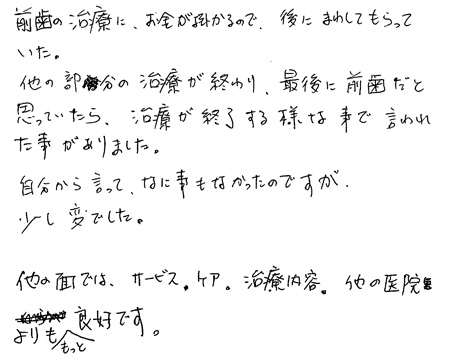 前歯の治療に、お金が掛かるので、後にまわしてもらって
いた。
他の部分の治療が終わり、最後に前歯だと
思っていたら、治療が終了する様な事で言われ
た事がありました。
自分から言って、なに事もなかったのですが、
少し変でした。
他の面では、サービス。ケア。治療内容。他の医院
よりももっと良好です。